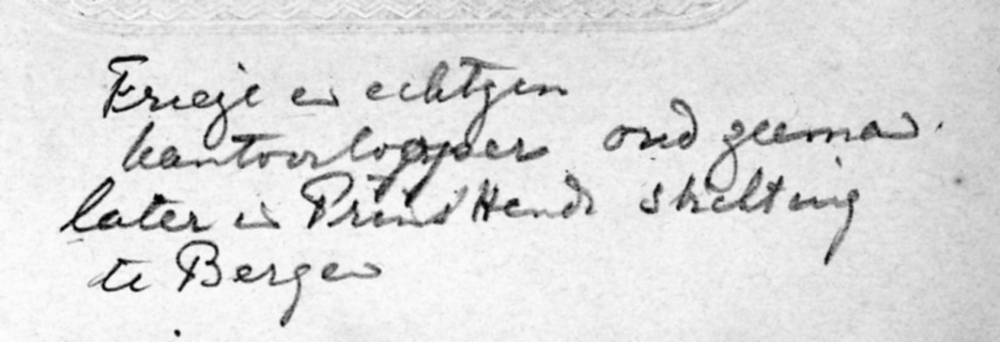 Friezе en echtgen
kantoorlooper oud zeeman.
later in Prins Hendr stichting
te Bergen